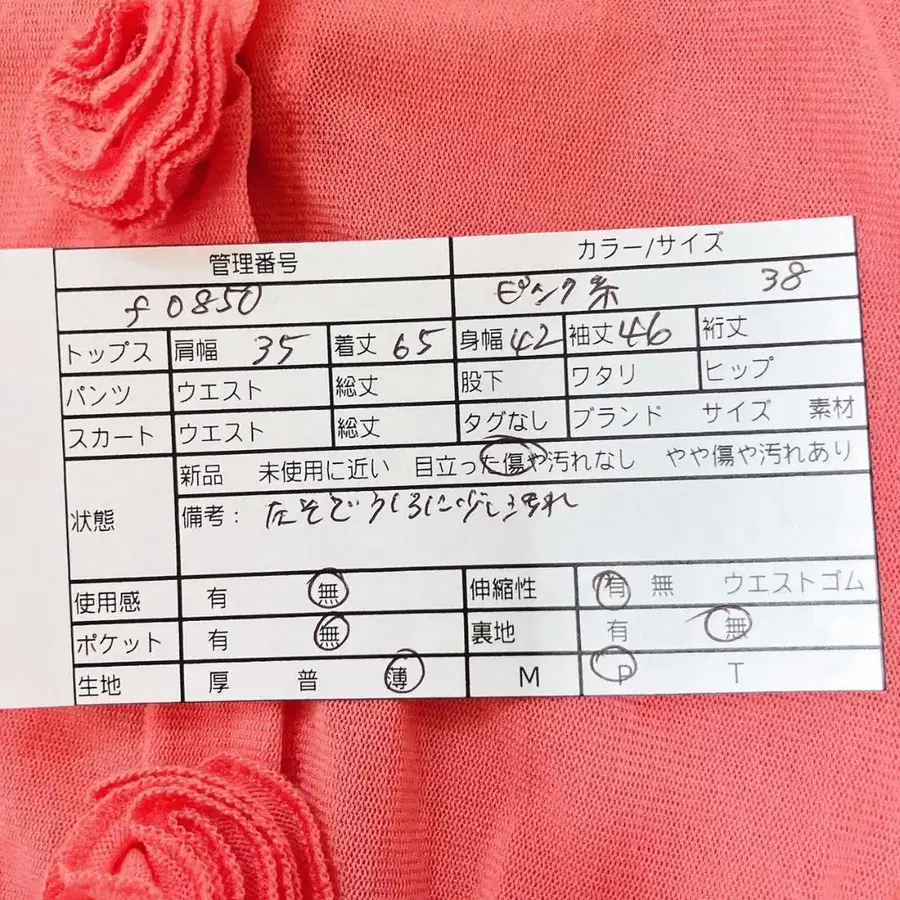 管理番号 カラー/サイズ
f0850 ピンク系 38
トップス 肩幅 35 着丈 65 身幅 42 袖丈 46 裄丈
パンツ ウエスト 総丈 股下 ワタリ ヒップ
スカート ウエスト 総丈 タグなし ブランド サイズ 素材
状態 新品 未使用に近い 目立った傷や汚れなし やや傷や汚れあり
備考: 左そでうしろに少し汚れ
使用感 有 無 伸縮性 有 無 ウエストゴム
ポケット 有 無 裏地 有 無
生地 厚 普 薄 M P T